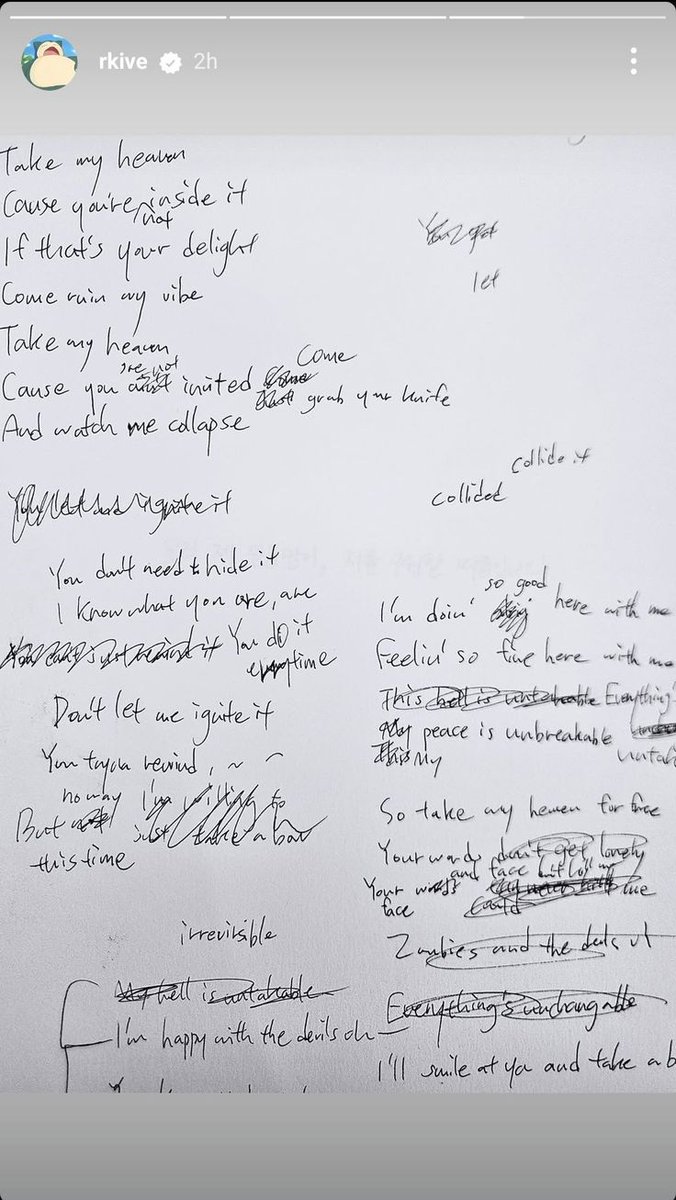 rkive 2h
Take my heaven
Cause you're not inside it
If that's your delight
Come ruin my vibe
Take my heaven
Cause you are not invited Come
grab your knife
And watch me collapse
let
collide it
collided
You don't need to hide it
I know what you are, are
You do it
everytime
Don't let me ignite it
You tryna rewind, ~ ~
no way I'm willing to
But just take a bow
this time
irrevirsible
My hell is untakable
I'm happy with the devils oh
so good
I'm doin' here with me
Feelin' so fine here with me
This hell is untakable Everything's
My peace is unbreakable
My
So take my heaven for free
Your words don't get lonely
and face
Your words
face
could
Zombies and the devils
Everything's unchangable
I'll smile at you and take a b